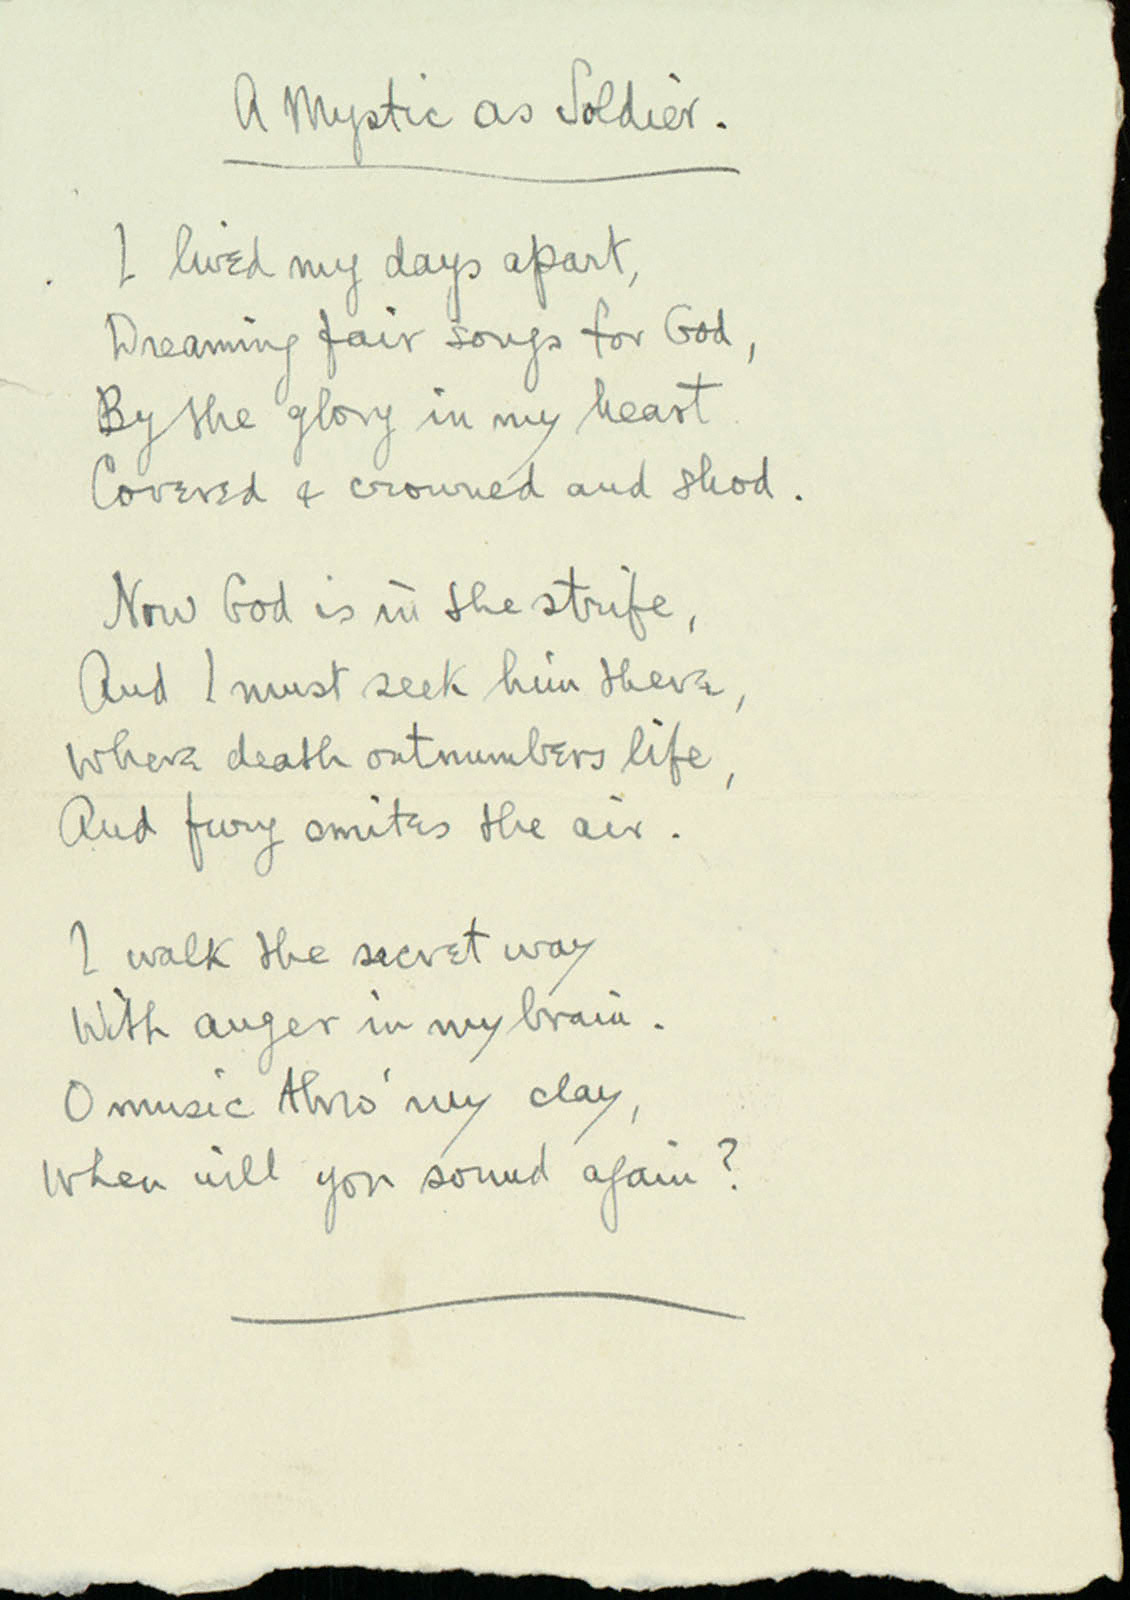 A Mystic as Soldier.
I lived my days apart,
Dreaming fair songs for God,
By the glory in my heart
Covered & crowned and shod.
Now God is in the strife,
And I must seek him there,
Where death outnumbers life,
And fury smites the air.
I walk the secret way
With anger in my brain.
O music thro' my clay,
When will you sound again?